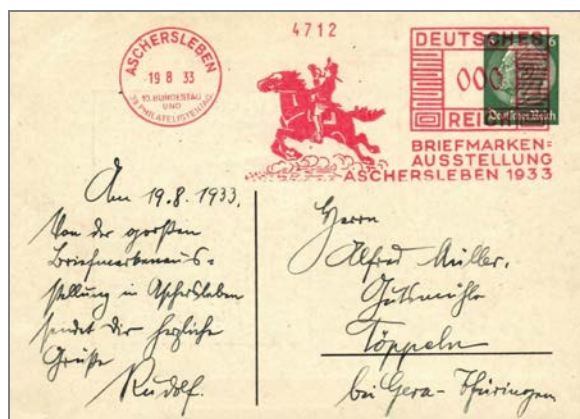 4712
ASCHERSLEBEN
19 8 33
10. BUNDESTAG
UND
39. PHILATELISTENTAG
DEUTSCHES
000
REICH
6
Deutsches Reich
BRIEFMARKEN=
AUSSTELLUNG
ASCHERSLEBEN 1933
Am 19.8.1933.
Von der großen
Briefmarkenaus=
stellung in Aschersleben
sendet Dir herzliche
Grüße
Rudolf.
Herrn
Alfred Müller.
Gutsmühle
Töppeln
bei Gera-Thüringen